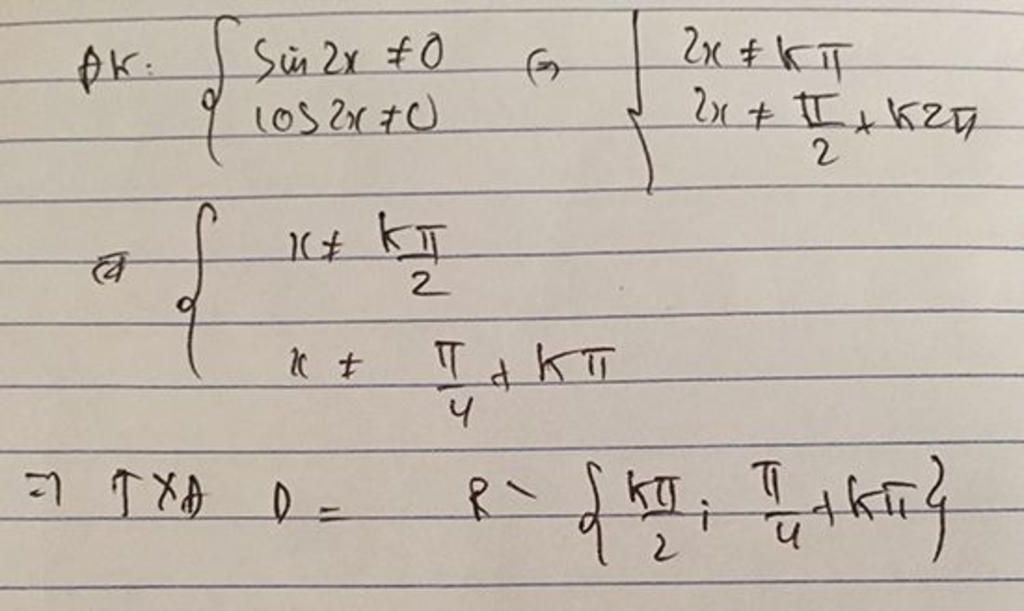 ĐK: { sin 2x ≠ 0 (=) { 2x ≠ kπ
cos 2x ≠ 0 2x ≠ π/2 + k2π
(=) { x ≠ kπ/2
x ≠ π/4 + kπ
=> TXĐ D = R \ { kπ/2 ; π/4 + kπ }